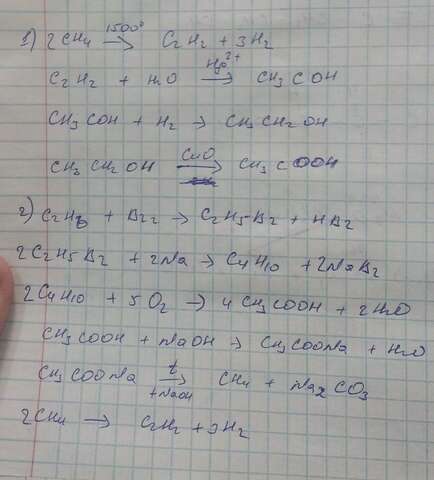 1) 2CH4 →1500° C2H2 + 3H2
C2H2 + H2O →Hg2+ CH3COH
CH3COH + H2 → CH3CH2OH
CH3CH2OH →CuO CH3COOH
2) C2H6 + Br2 → C2H5Br + HBr
2C2H5Br + 2Na → C4H10 + 2NaBr
2C4H10 + 5O2 → 4CH3COOH + 2H2O
CH3COOH + NaOH → CH3COONa + H2O
CH3COONa →t +NaOH CH4 + Na2CO3
2CH4 → C2H2 + 3H2